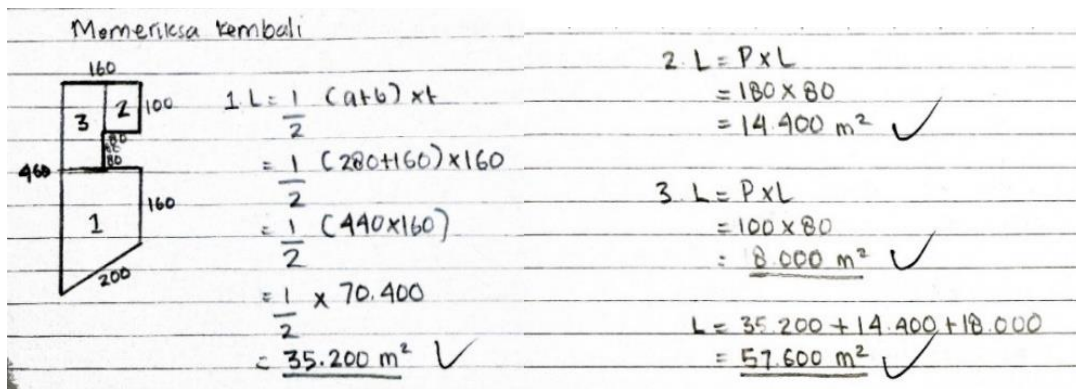 Memeriksa kembali
160
3
2
100
80
80
460
1
160
200
1. L = 1/2 (a+b) x t
= 1/2 (280+160) x 160
= 1/2 (440x160)
= 1/2 x 70.400
= 35.200 m² ✓
2. L = P x L
= 180 x 80
= 14.400 m² ✓
3. L = P x L
= 100 x 80
= 8.000 m² ✓
L = 35.200 + 14.400 + 18.000
= 57.600 m² ✓